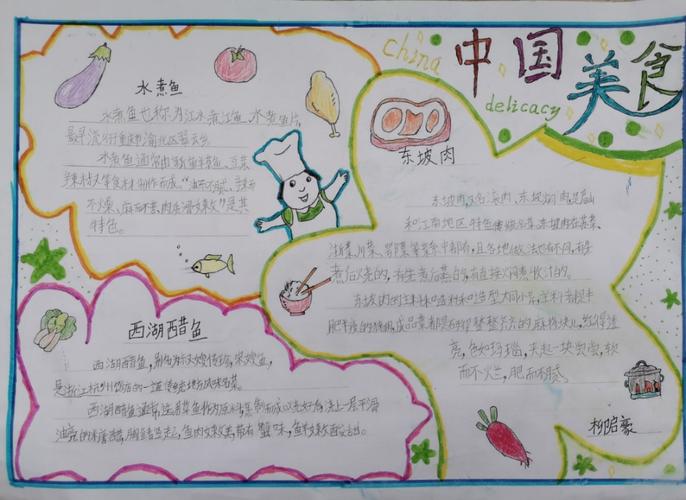 China
中国美食
delicacy
水煮鱼
水煮鱼也称为江水煮江鱼、水煮鱼片,
最早流行于重庆渝北区
水煮鱼通常由新鲜草鱼、豆芽
辣椒等食材制作而成。"油而不腻、辣
不燥、麻
肉质滑嫩"是其
特色。
东坡肉
东坡肉又名滚肉、东坡焖肉,是眉山
和江南地区特色传统名菜,东坡肉在苏菜、
浙菜、川菜、鄂菜等菜系中都有,且各地做法也有不同,有先
煮后烧的,有先煮后蒸的,有直接焖煮收汁的
东坡肉的主料和造型大同小异,主料都是半
肥半瘦的猪肉,成品菜都是
整整齐齐的麻将块儿,红得透
亮,色如玛瑙,夹起一块尝尝,软
而不烂,肥而不腻。
西湖醋鱼
西湖醋鱼,别名为叔嫂传珍,宋嫂鱼,
是浙江杭州饭店的一道传统地方风味名菜。
西湖醋鱼通常选用草鱼作为原料,烹制而成,烧好后,浇上一层平滑
油亮的糖醋,胸鳍竖起,鱼肉嫩美,带有蟹味,鱼鲜嫩酸甜。
柳启豪